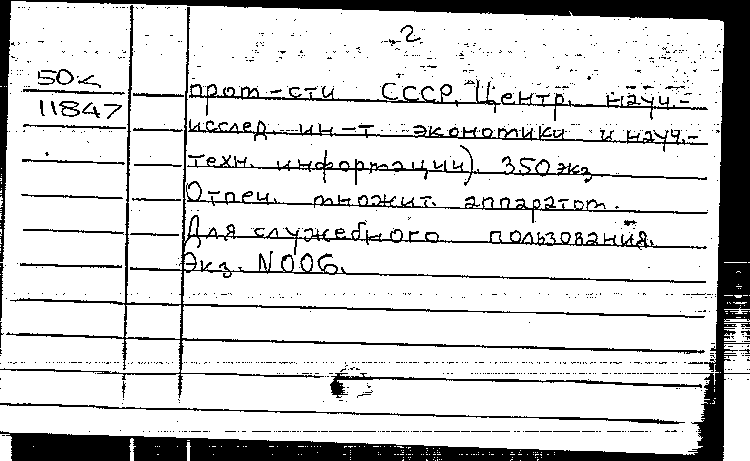 2
50к
11847
пром-сти СССР, Центр. науч.-
исслед. ин-т экономики и науч.-
техн. информации). 350 экз
Отпеч. множит. аппаратом.
Для служебного пользования.
Экз. N006.